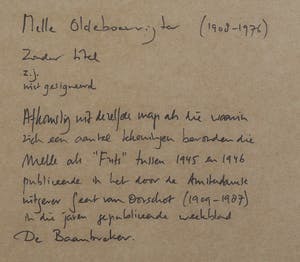 Melle Oldeboerrigter (1908-1976)
Zonder titel
z.j.
niet gesigneerd
Afkomstig uit dezelfde map als die waarin
zich een aantal tekeningen bevonden die
Melle als "Futs" tussen 1945 en 1946
publiceerde in het door de Amsterdamse
uitgever Geert van Oorschot (1909-1987)
in die jaren gepubliceerde weekblad
De Baanbreker.